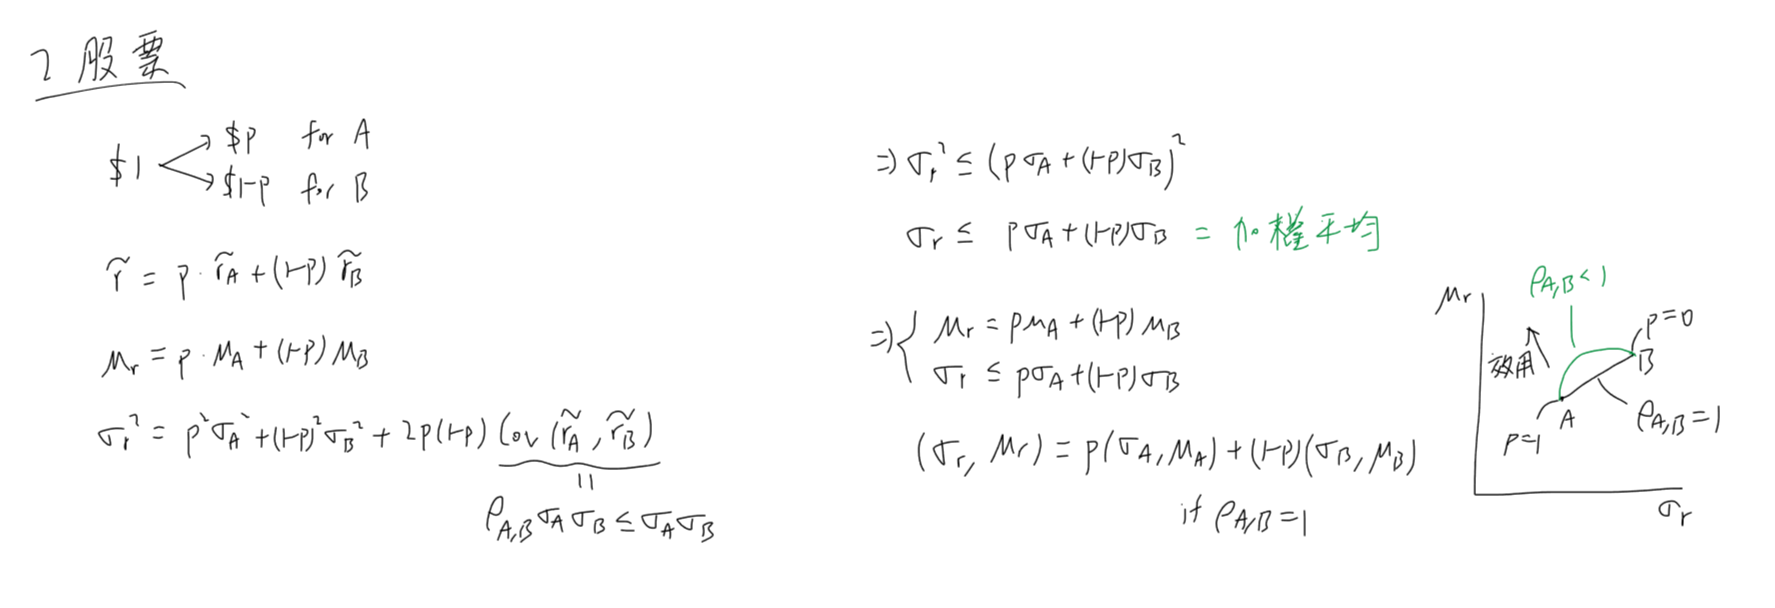 2 股票
$1 → $p for A
→ $1-p for B
r̃ = p · r̃_A + (1-p) r̃_B
μ_r = p · μ_A + (1-p) μ_B
σ_r² = p² σ_A² + (1-p)² σ_B² + 2p(1-p) Cov(r̃_A, r̃_B)
||
ρ_{A,B} σ_A σ_B ≤ σ_A σ_B
⇒ σ_r² ≤ (p σ_A + (1-p) σ_B)²
σ_r ≤ p σ_A + (1-p) σ_B = 加權平均
⇒ { μ_r = p μ_A + (1-p) μ_B
σ_r ≤ p σ_A + (1-p) σ_B
(σ_r, μ_r) = p(σ_A, μ_A) + (1-p)(σ_B, μ_B)
if ρ_{A,B} = 1
μ_r
ρ_{A,B} < 1
p=0
效用
B
A
p=1
ρ_{A,B} = 1
σ_r